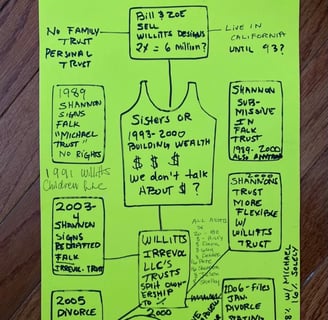 Bill & ZOE
SELL
WILLITTS DESIGNS
2X = 6 million?
NO FAMILY
TRUST
PERSONAL
TRUST
LIVE IN
CALIFORNIA
UNTIL 93?
1989
SHANNON
SIGNS
FALK
"MICHAEL
TRUST"
NO RIGHTS
Sisters OR
1993-2000
BUILDING WEALTH
$ $ $
we don't talk
ABOUT $ ?
SHANNON
SUB-
MISSIVE
IN
FALK
TRUST
1999-2000
ALSO
1991 Willitts
Children LLC
2003-
4
SHANNON
SIGNS
RESTATED
FALK
IRREVOC. TRUST
SHANNONS
TRUST
MORE
FLEXIBLE
W/
WILLITTS
TRUST
ALL ASSETS
WILLITTS
IRREVOC
LLC'S
TRUSTS
SPLIT OWN-
ERSHIP
TO
2000
2005
DIVORCE
2006-FILES
JAN
DIVORCE
8% W/ MICHAEL
16% SOLELY